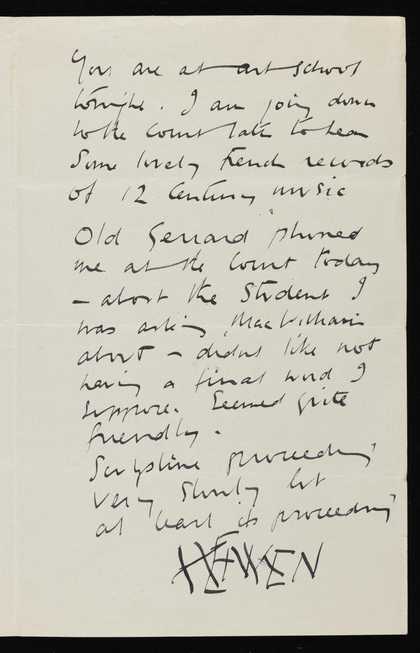 You are at art school
tonight. I am going down
to the Court late to hear
Some lovely French records
of 12 Century music
Old Gerrard 'phoned
me at the Court today
– about the Student I
was asking MacWilliam
about – didnt like not
having a final word I
suppose. Seemed quite
friendly.
Sculpture proceeding
very slowly but
at least is proceeding